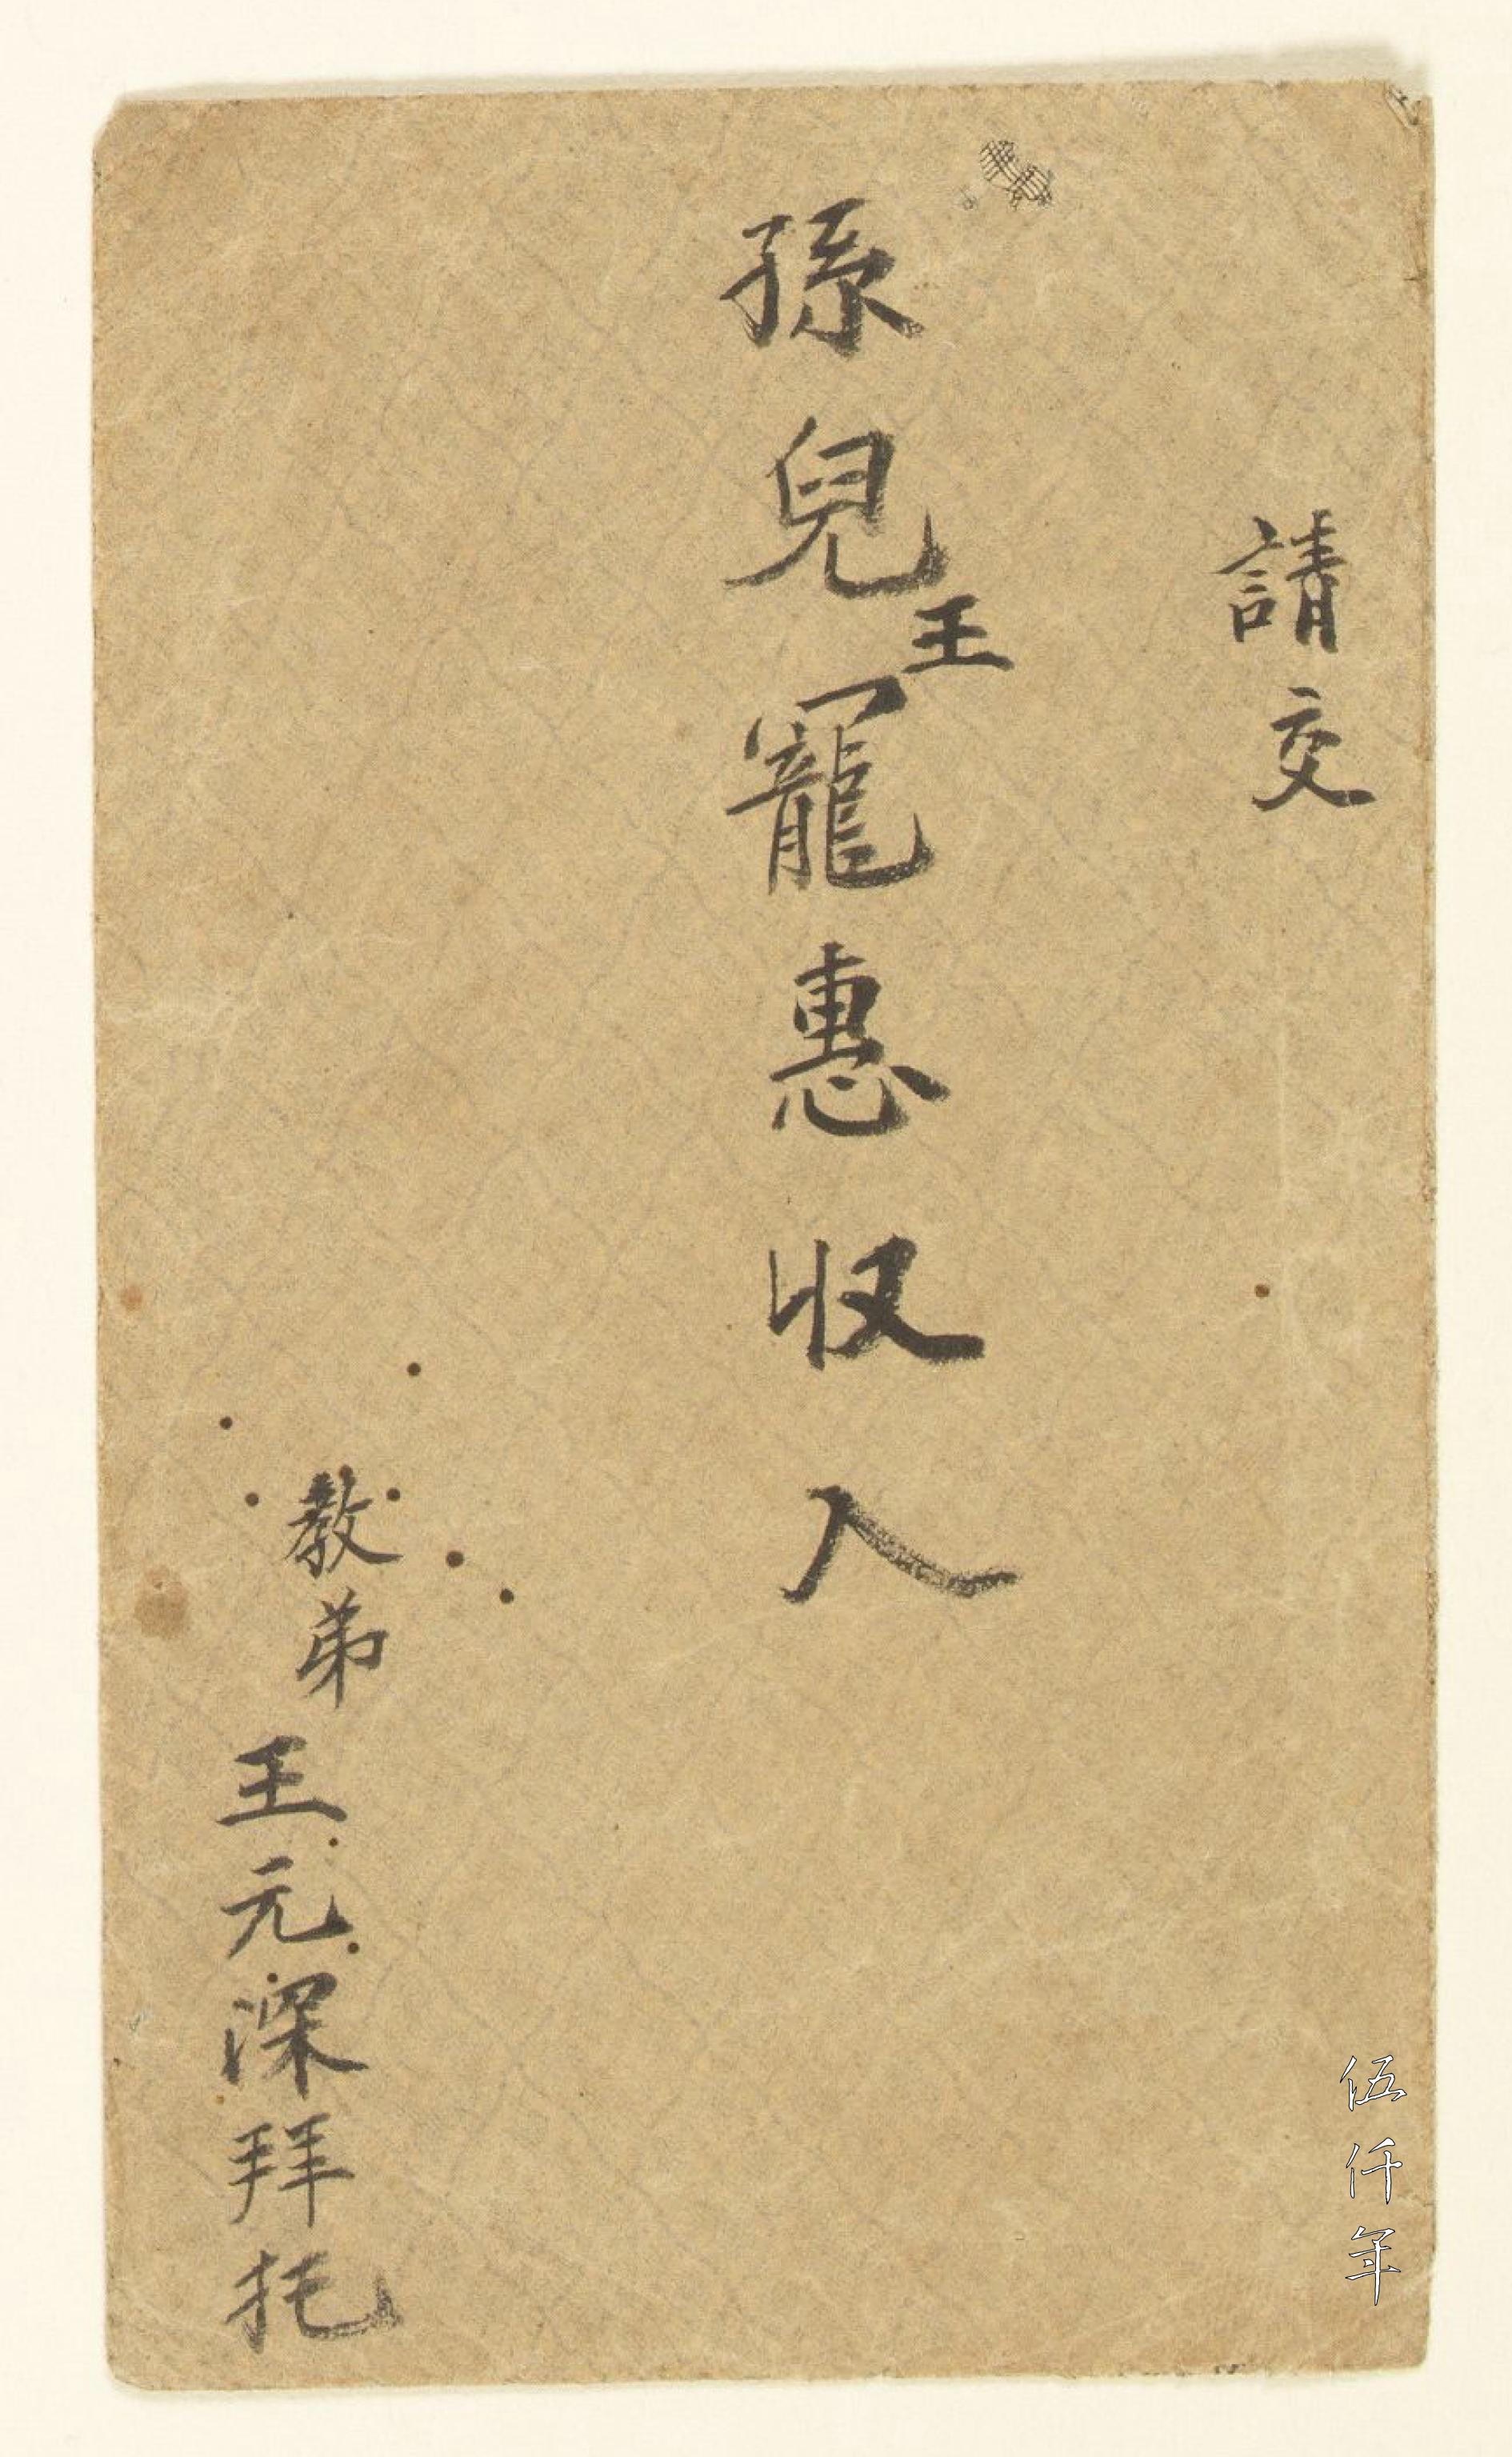 請交
孫兒王寵惠収入
教弟
王元深拜托
伍仟年